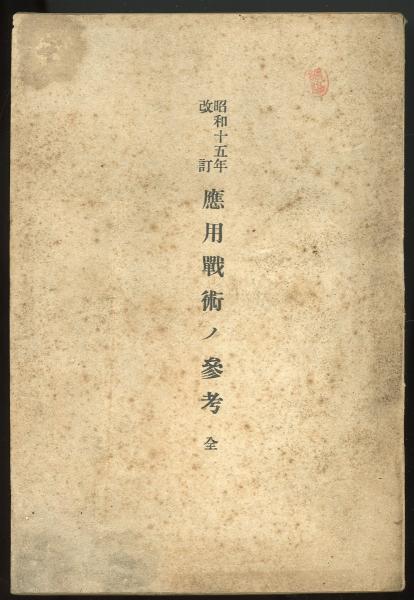 昭和十五年
改訂
應用戰術ノ參考 全